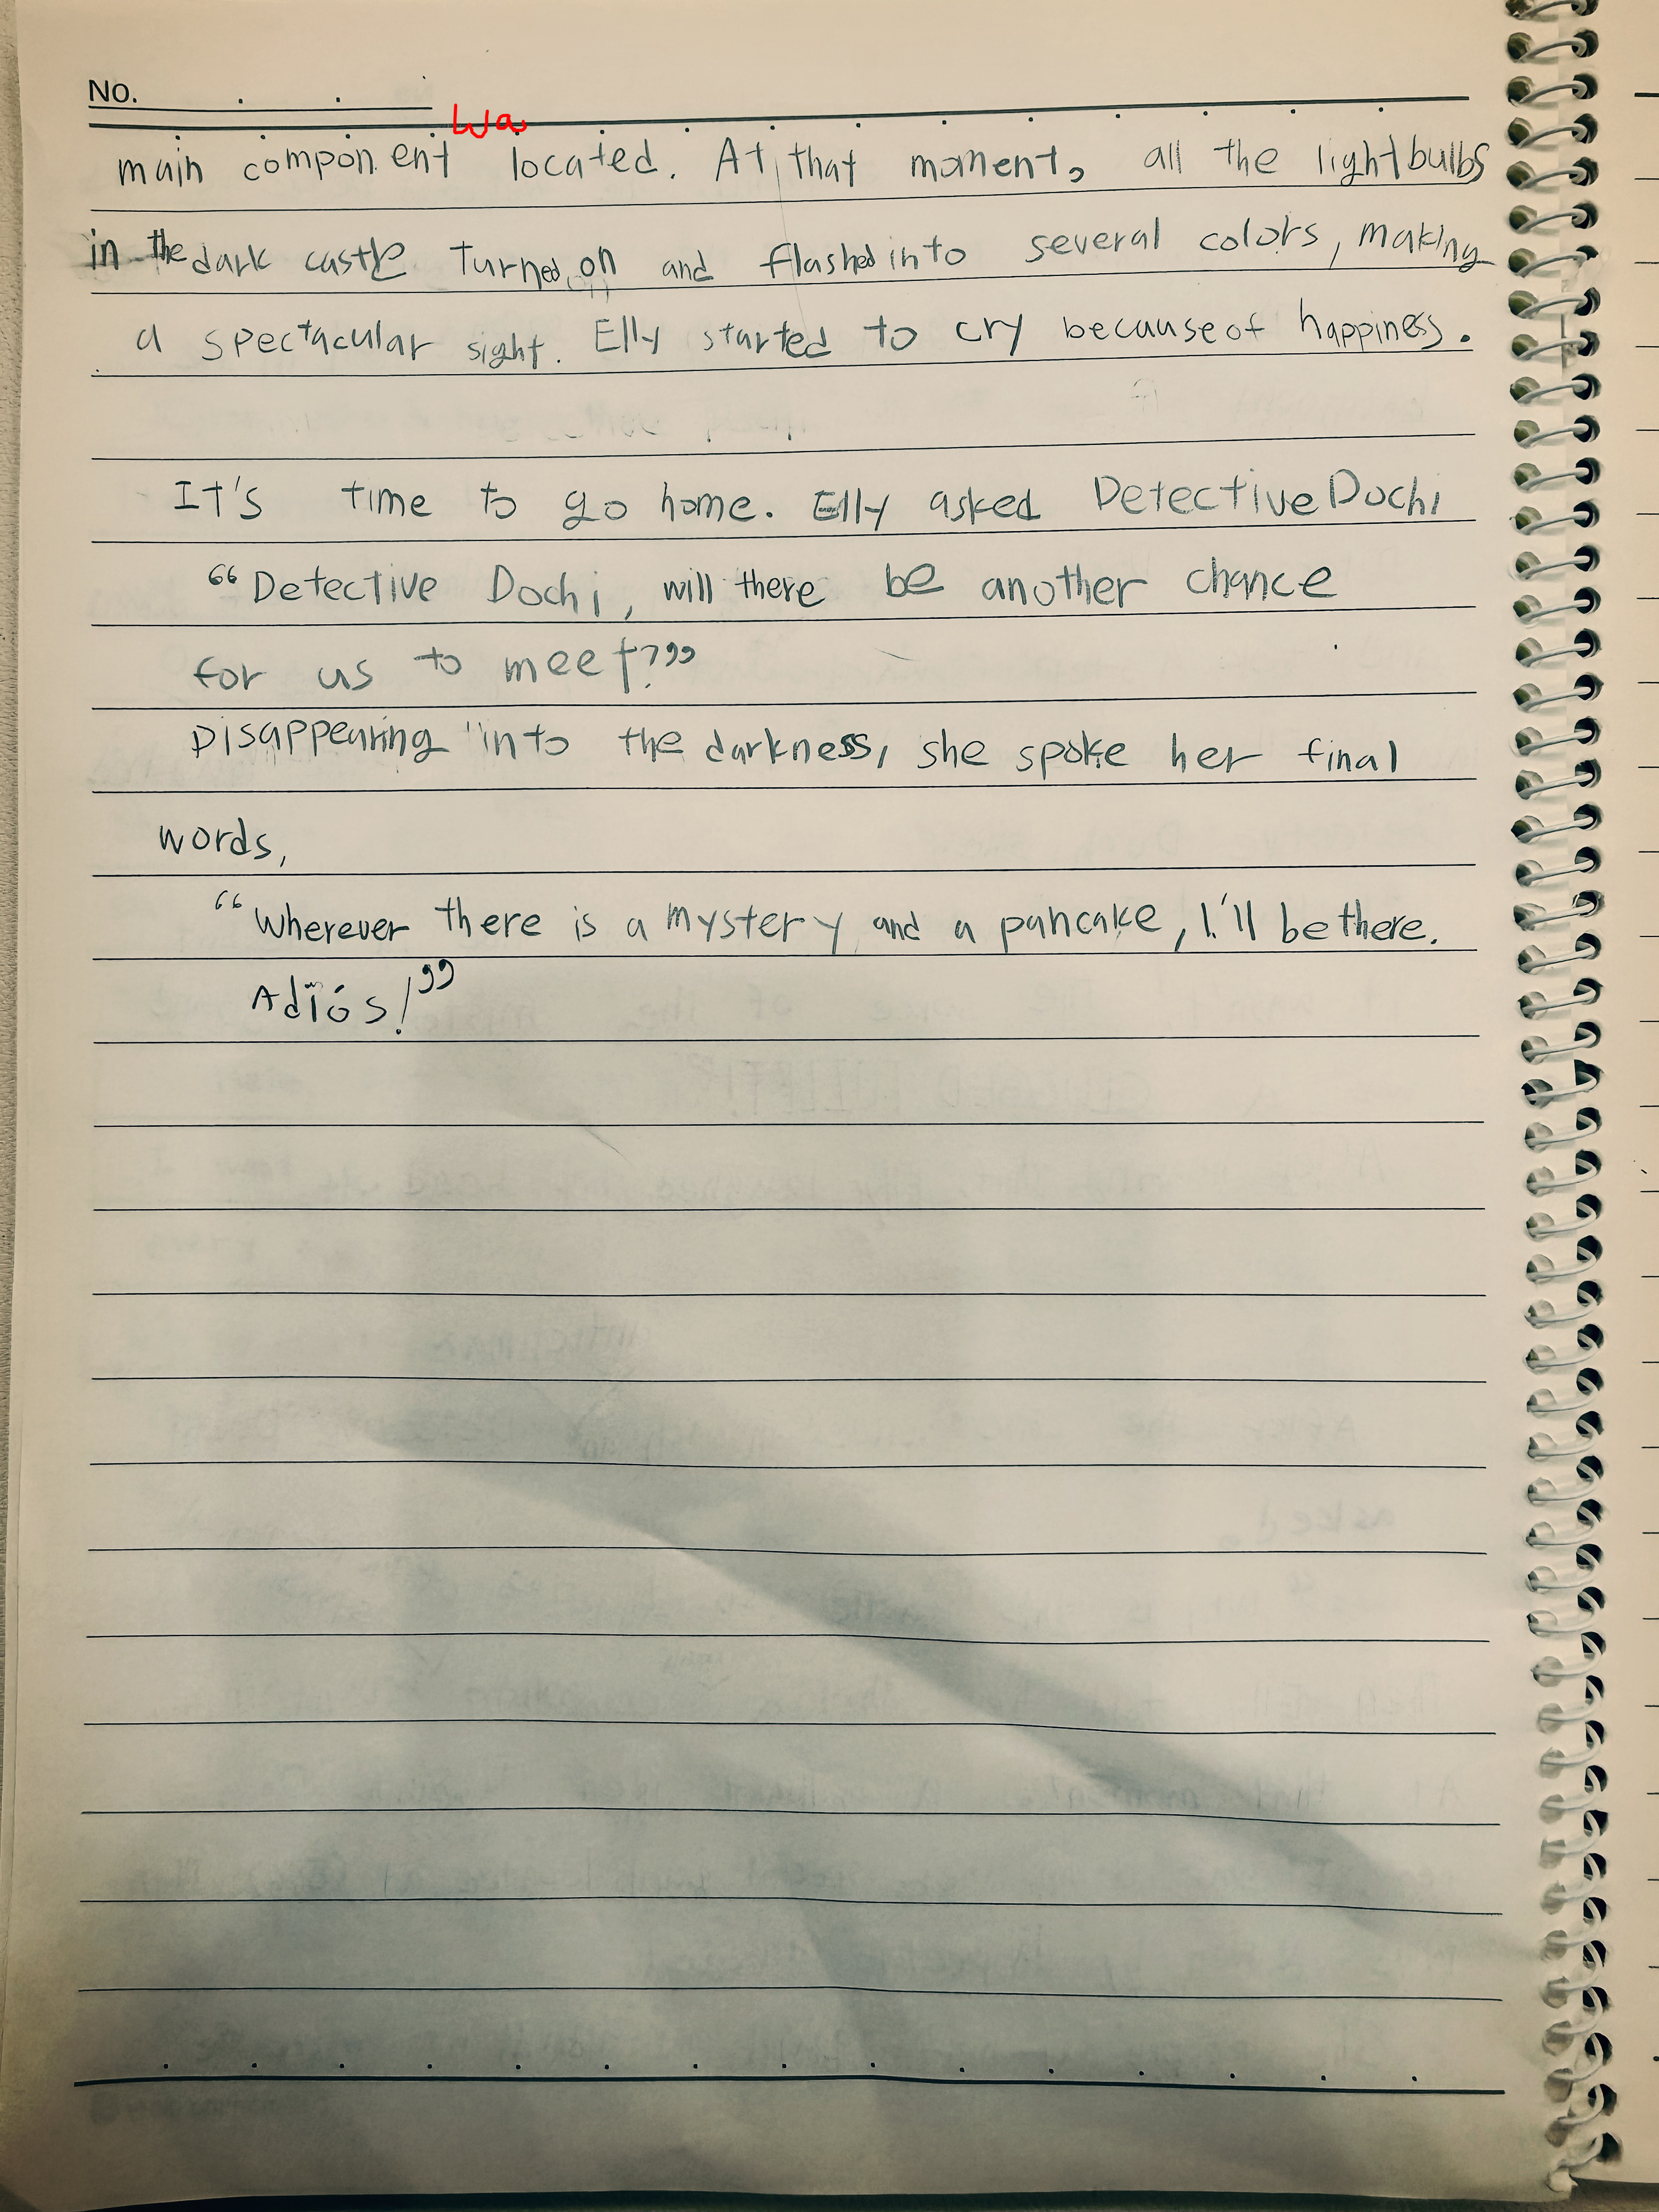 No.
was
main component located. At that moment, all the lightbulbs
in the dark castle Turned on and flashed into several colors, making
a spectacular sight. Elly started to cry because of happiness.
It's time to go home. Elly asked Detective Dochi
“Detective Dochi, will there be another chance
for us to meet?”
Disappearing into the darkness, she spoke her final
words,
“Wherever there is a mystery and a pancake, I'll be there.
Adiós!”